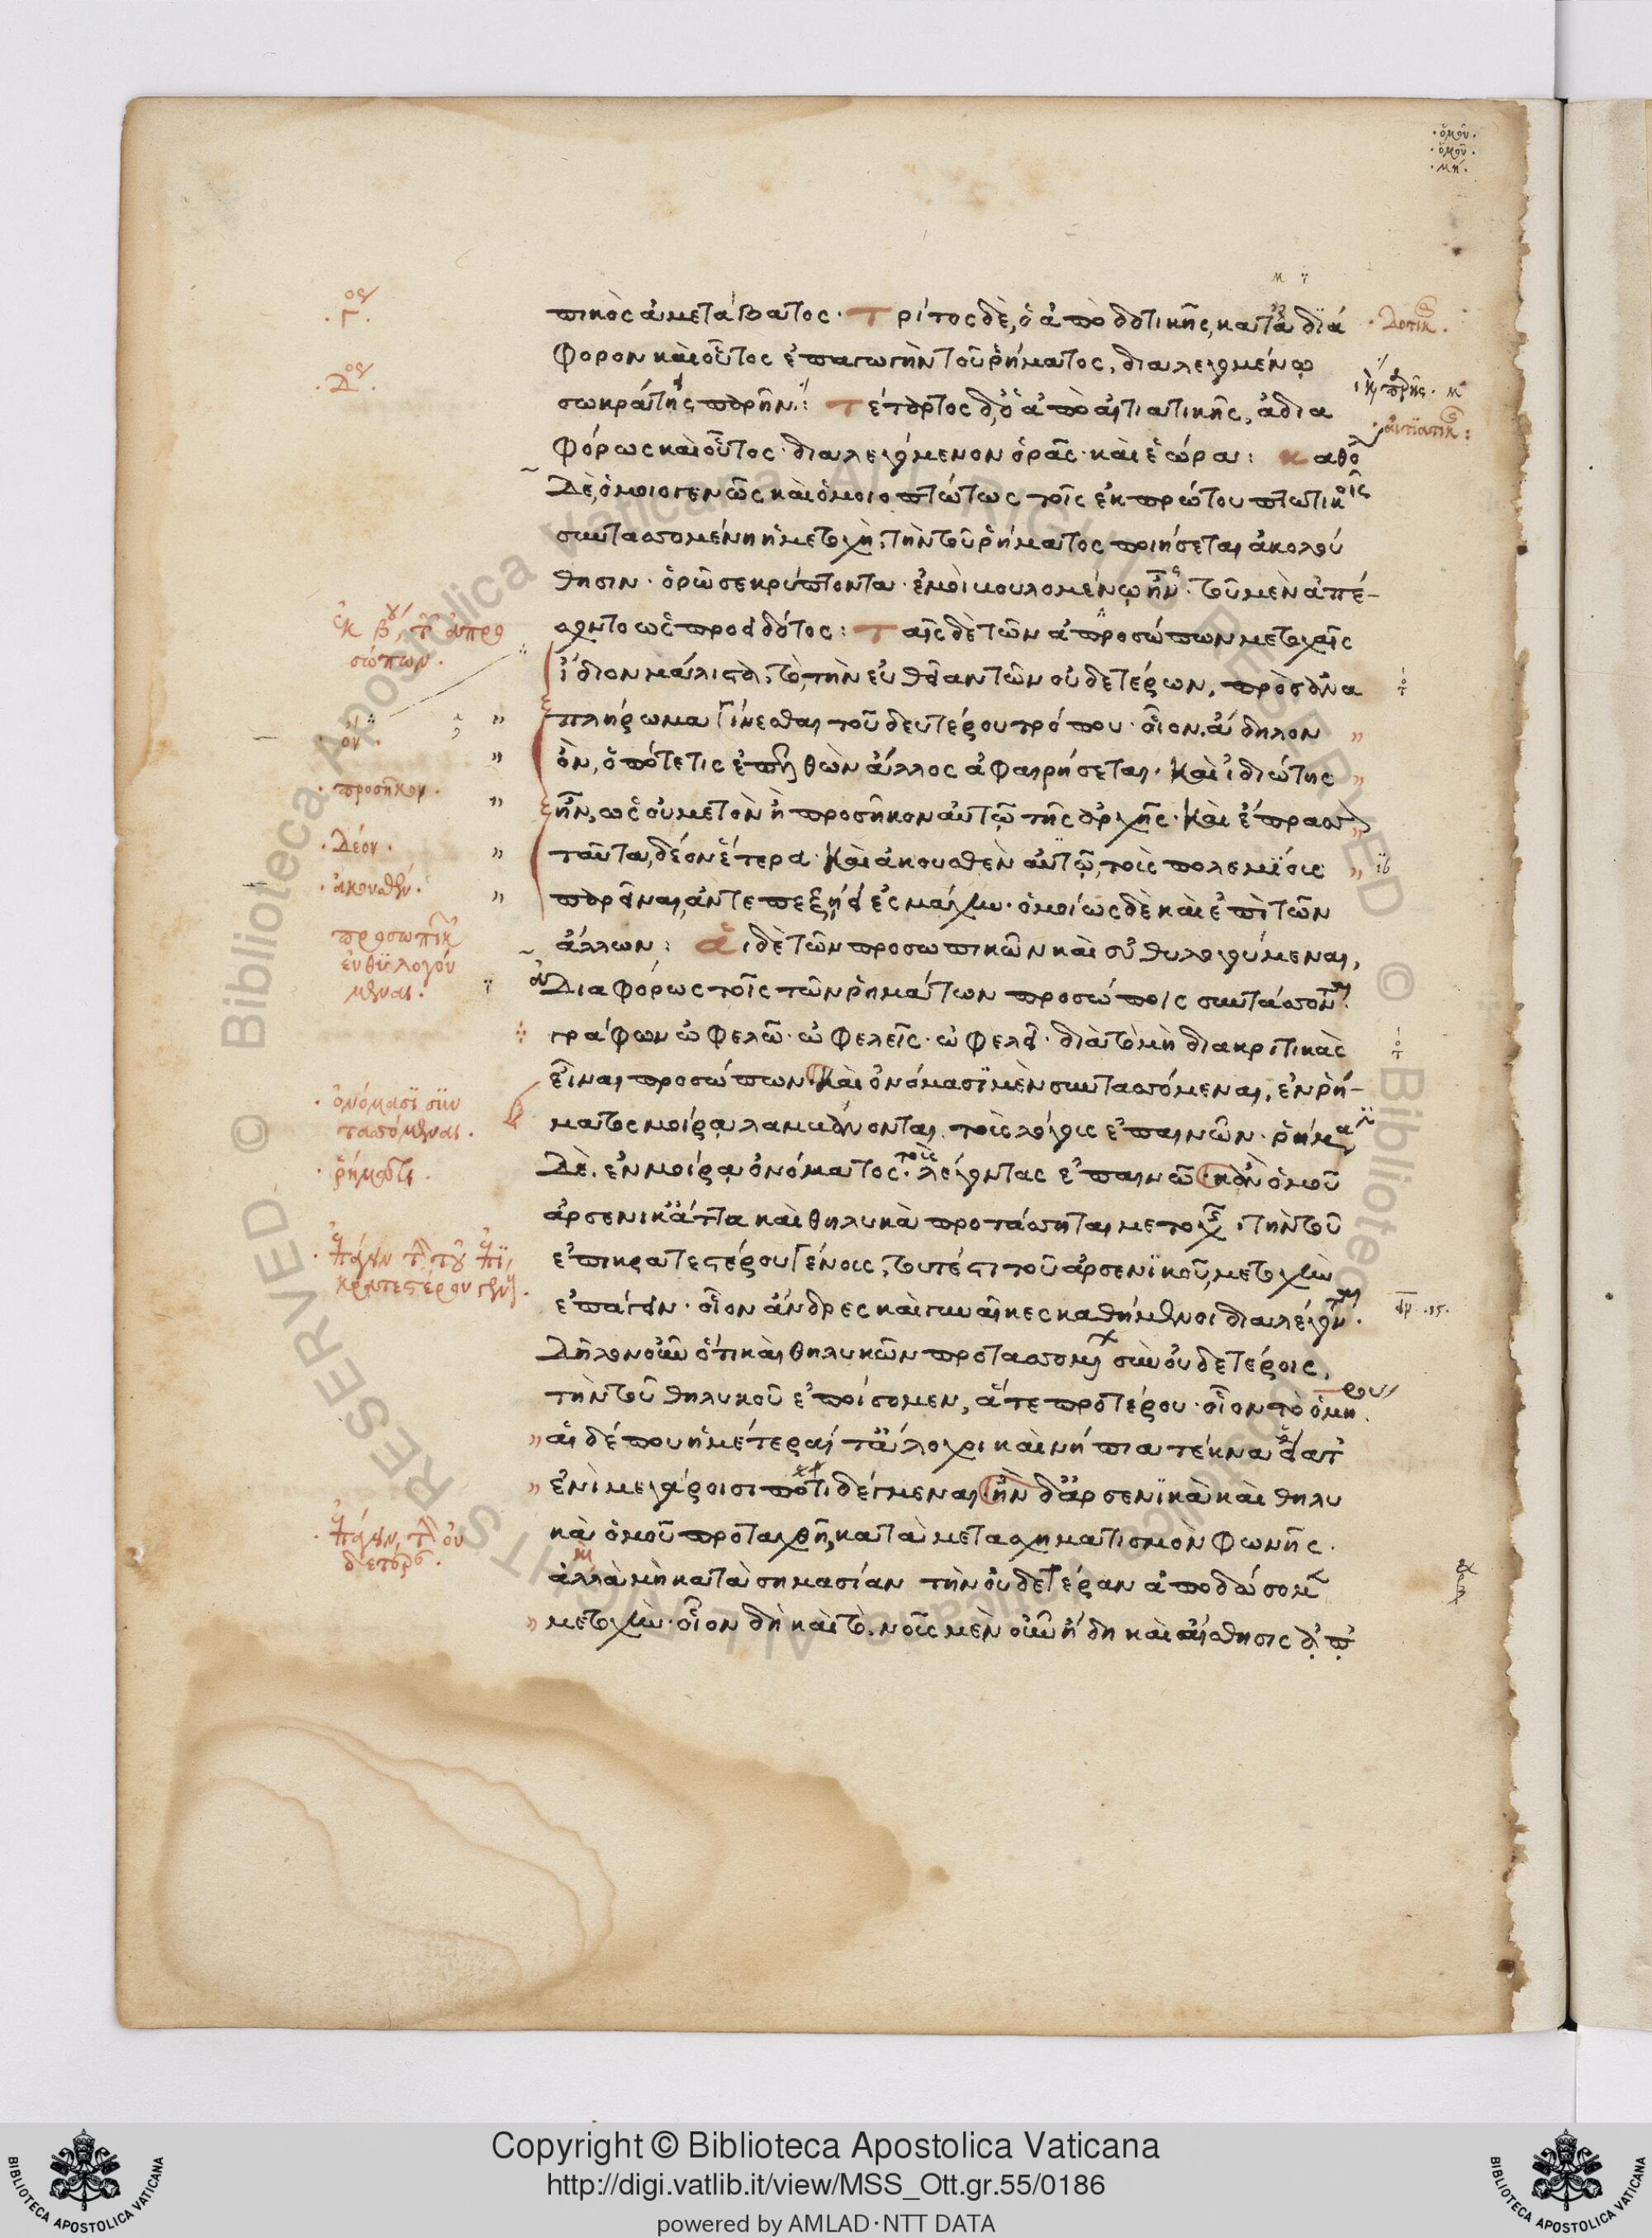 ·ὁμοῦ·
·ὁμοῦ·
·μή·
πικὸς ἀμετάβατος· Τρίτος δὲ, ὁ ἀπὸ δοτικῆς, κατὰ διά
φορον καὶ οὗτος ἐπαγωγὴν τοῦ ῥήματος, διαλεγομένῳ
σωκράτης παρῆν: Τέταρτος δ, ὁ ἀπὸ αἰτιατικῆς, ἀδια
φόρως καὶ οὗτος· διαλεγόμενον ὁρᾶς· καὶ ἑώρα: καθο
Δὲ, ὁμοιογενῶς καὶ ὁμοιοπτώτως τοῖς ἐκ πρώτου πτωτικοῖς
συντασσομένη ἡ μετοχὴ, τὴν τοῦ ῥήματος ποιήσεται ἀκολού
θησιν· ὁρῶ σε κρύπτοντα· ἐμοὶ βουλομένῳ ἦν· τοῦ μὲν ἀπέ-
σχοντο ὡς προδότος: Ταῖς δὲ τῶν ἀπροσώπων μετοχαῖς
ἴδιον μάλιστα, τὸ, τὴν εὐθεῖαν τῶν οὐδετέρων, πρὸς ἀνα
πλήρωμα γίνεσθαι τοῦ δευτέρου τρόπου· οἷον, ἄδηλον
ὂν, ὁπότε τις ἐπελθὼν ἄλλος ἀφαιρήσεται· καὶ ἰδιώτης
ἦν, ὡς οὐ μετὸν ἢ προσῆκον αὐτῷ τῆς ἀρχῆς· καὶ ἔπρασ
ταῦτα, δέον ἕτερα· καὶ ἀκουσθὲν αὐτῷ, τοὺς πολεμίους
παρεῖναι, ἀντεπεξῄει ἐς μάχην· ὁμοίως δὲ καὶ ἐπὶ τῶν
ἄλλων: Αἱ δὲ τῶν προσωπικῶν καὶ εὐθυλογούμεναι,
Διαφόρως τοῖς τῶν ῥημάτων προσώποις συντάσσονται
γράφων ὠφελῶ· ὠφελεῖς· ὠφελεῖ· διὰ τὸ μὴ διακριτικὰς
εἶναι προσώπων. Καὶ ὀνόμασι μὲν συντασσόμεναι, ἐν ῥή-
ματος μοίρᾳ λαμβάνονται τοὺς λόγους ἐπαινῶν· ῥήμασι
Δὲ, ἐν μοίρᾳ ὀνόματος· τοὺς λέγοντας ἐπαινῶ· κἂν ὁμοῦ
ἀρσενικὰ ἄττα καὶ θηλυκὰ προτάσσηται μετοχῆς, τὴν τοῦ
ἐπικρατεστέρου γένους, τουτέστι τοῦ ἀρσενικοῦ, μετοχὴν
ἐπάγειν· οἷον ἄνδρες καὶ γυναῖκες καθήμενοι διαλέγονται·
Δῆλον οὖν ὅτι καὶ θηλυκῶν προτασσομένων σὺν οὐδετέροις,
τὴν τοῦ θηλυκοῦ ἐποίσομεν, ἅτε προτέρου· οἷον τὸ ὁμήρου
αἱ δέ που ἡμέτεραί τ' ἄλοχοι καὶ νήπια τέκνα εἵατ'
ἐνὶ μεγάροισι ποτιδέγμεναι· ἢν δ' ἀρσενικὰ καὶ θηλυ
κὰ ὁμοῦ προταχθῇ, κατὰ μετασχηματισμὸν φωνῆς·
ἀλλὰ μὴ κατὰ σημασίαν τὴν οὐδετέραν ἀποδώσομεν
μετοχὴν· οἷον δὴ καὶ τὸ, νοῦς μὲν οὖν ἤδη καὶ αἴσθησις
·Γος·
·Δος·
ἐκ βου, τῶν ἀπρο
σώπων·
·ὄν·
·προσῆκον·
·Δέον·
·ἀκουσθέν·
προσωπικ
εὐθυλογού
μεναι·
·ὀνόμασι συν
τασσόμεναι·
·ῥήμασι·
·ἐπάγειν τὴν τοῦ ἐπι
κρατεστέρου γένους·
·ἐπάγειν, τὴν οὐ
δετέρας·
·Δοτικῆς·
·αἰτιατικῆς: